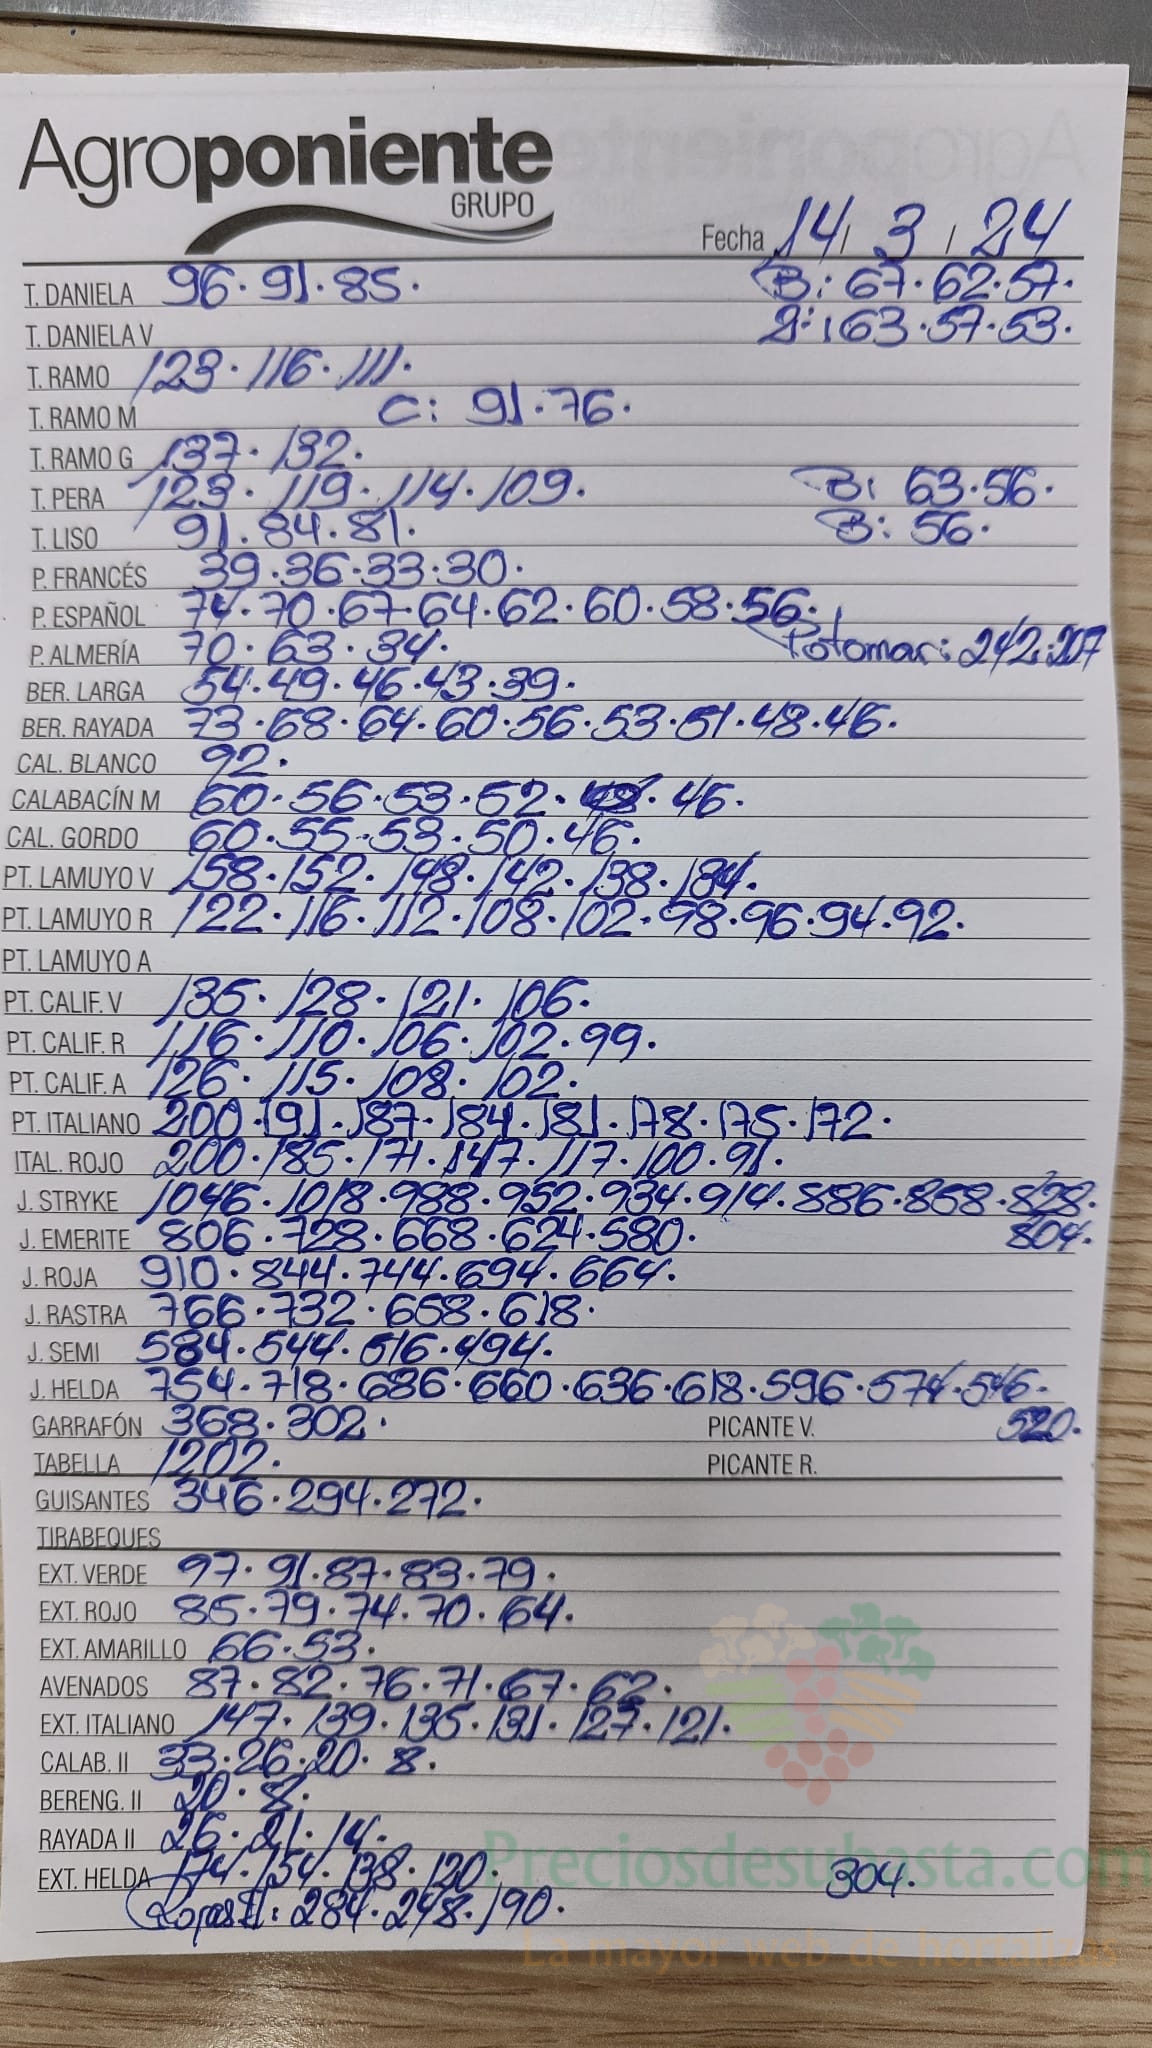 Agroponiente
GRUPO
Fecha 14 / 3 / 24
T. DANIELA 96. 91. 85. B: 67. 62. 57.
T. DANIELA V 2ª: 63. 57. 53.
T. RAMO 123. 116. 111.
T. RAMO M C: 91. 76.
T. RAMO G 137. 132.
T. PERA 123. 119. 114. 109. B: 63. 56.
T. LISO 91. 84. 81. B: 56.
P. FRANCÉS 39. 36. 33. 30.
P. ESPAÑOL 74. 70. 67. 64. 62. 60. 58. 56.
P. ALMERÍA 70. 63. 34. Potomar: 242. 207
BER. LARGA 54. 49. 46. 43. 39.
BER. RAYADA 73. 68. 64. 60. 56. 53. 51. 48. 46.
CAL. BLANCO 92.
CALABACÍN M 60. 56. 53. 52. 48. 46.
CAL. GORDO 60. 55. 53. 50. 46.
PT. LAMUYO V 158. 152. 148. 142. 138. 134.
PT. LAMUYO R 122. 116. 112. 108. 102. 98. 96. 94. 92.
PT. LAMUYO A
PT. CALIF. V 135. 128. 121. 106.
PT. CALIF. R 116. 110. 106. 102. 99.
PT. CALIF. A 126. 115. 108. 102.
PT. ITALIANO 200. 191. 187. 184. 181. 178. 175. 172.
ITAL. ROJO 200. 185. 171. 147. 117. 100. 91.
J. STRYKE 1046. 1018. 988. 952. 934. 914. 886. 858. 828.
J. EMERITE 806. 728. 668. 624. 580. 804.
J. ROJA 910. 844. 744. 694. 664.
J. RASTRA 766. 732. 658. 618.
J. SEMI 584. 544. 516. 494.
J. HELDA 754. 718. 686. 660. 636. 618. 596. 574. 546.
GARRAFÓN 368. 302. PICANTE V. 520.
TABELLA 1202. PICANTE R.
GUISANTES 346. 294. 272.
TIRABEQUES
EXT. VERDE 97. 91. 87. 83. 79.
EXT. ROJO 85. 79. 74. 70. 64.
EXT. AMARILLO 66. 53.
AVENADOS 87. 82. 76. 71. 67. 62.
EXT. ITALIANO 147. 139. 135. 131. 127. 121.
CALAB. II 33. 26. 20. 8.
BERENG. II 20. 8.
RAYADA II 26. 21. 14.
Preciosdesubasta.com
EXT. HELDA 174. 154. 138. 120. 304.
Rojas II: 284. 248. 190.
La mayor web de hortalizas